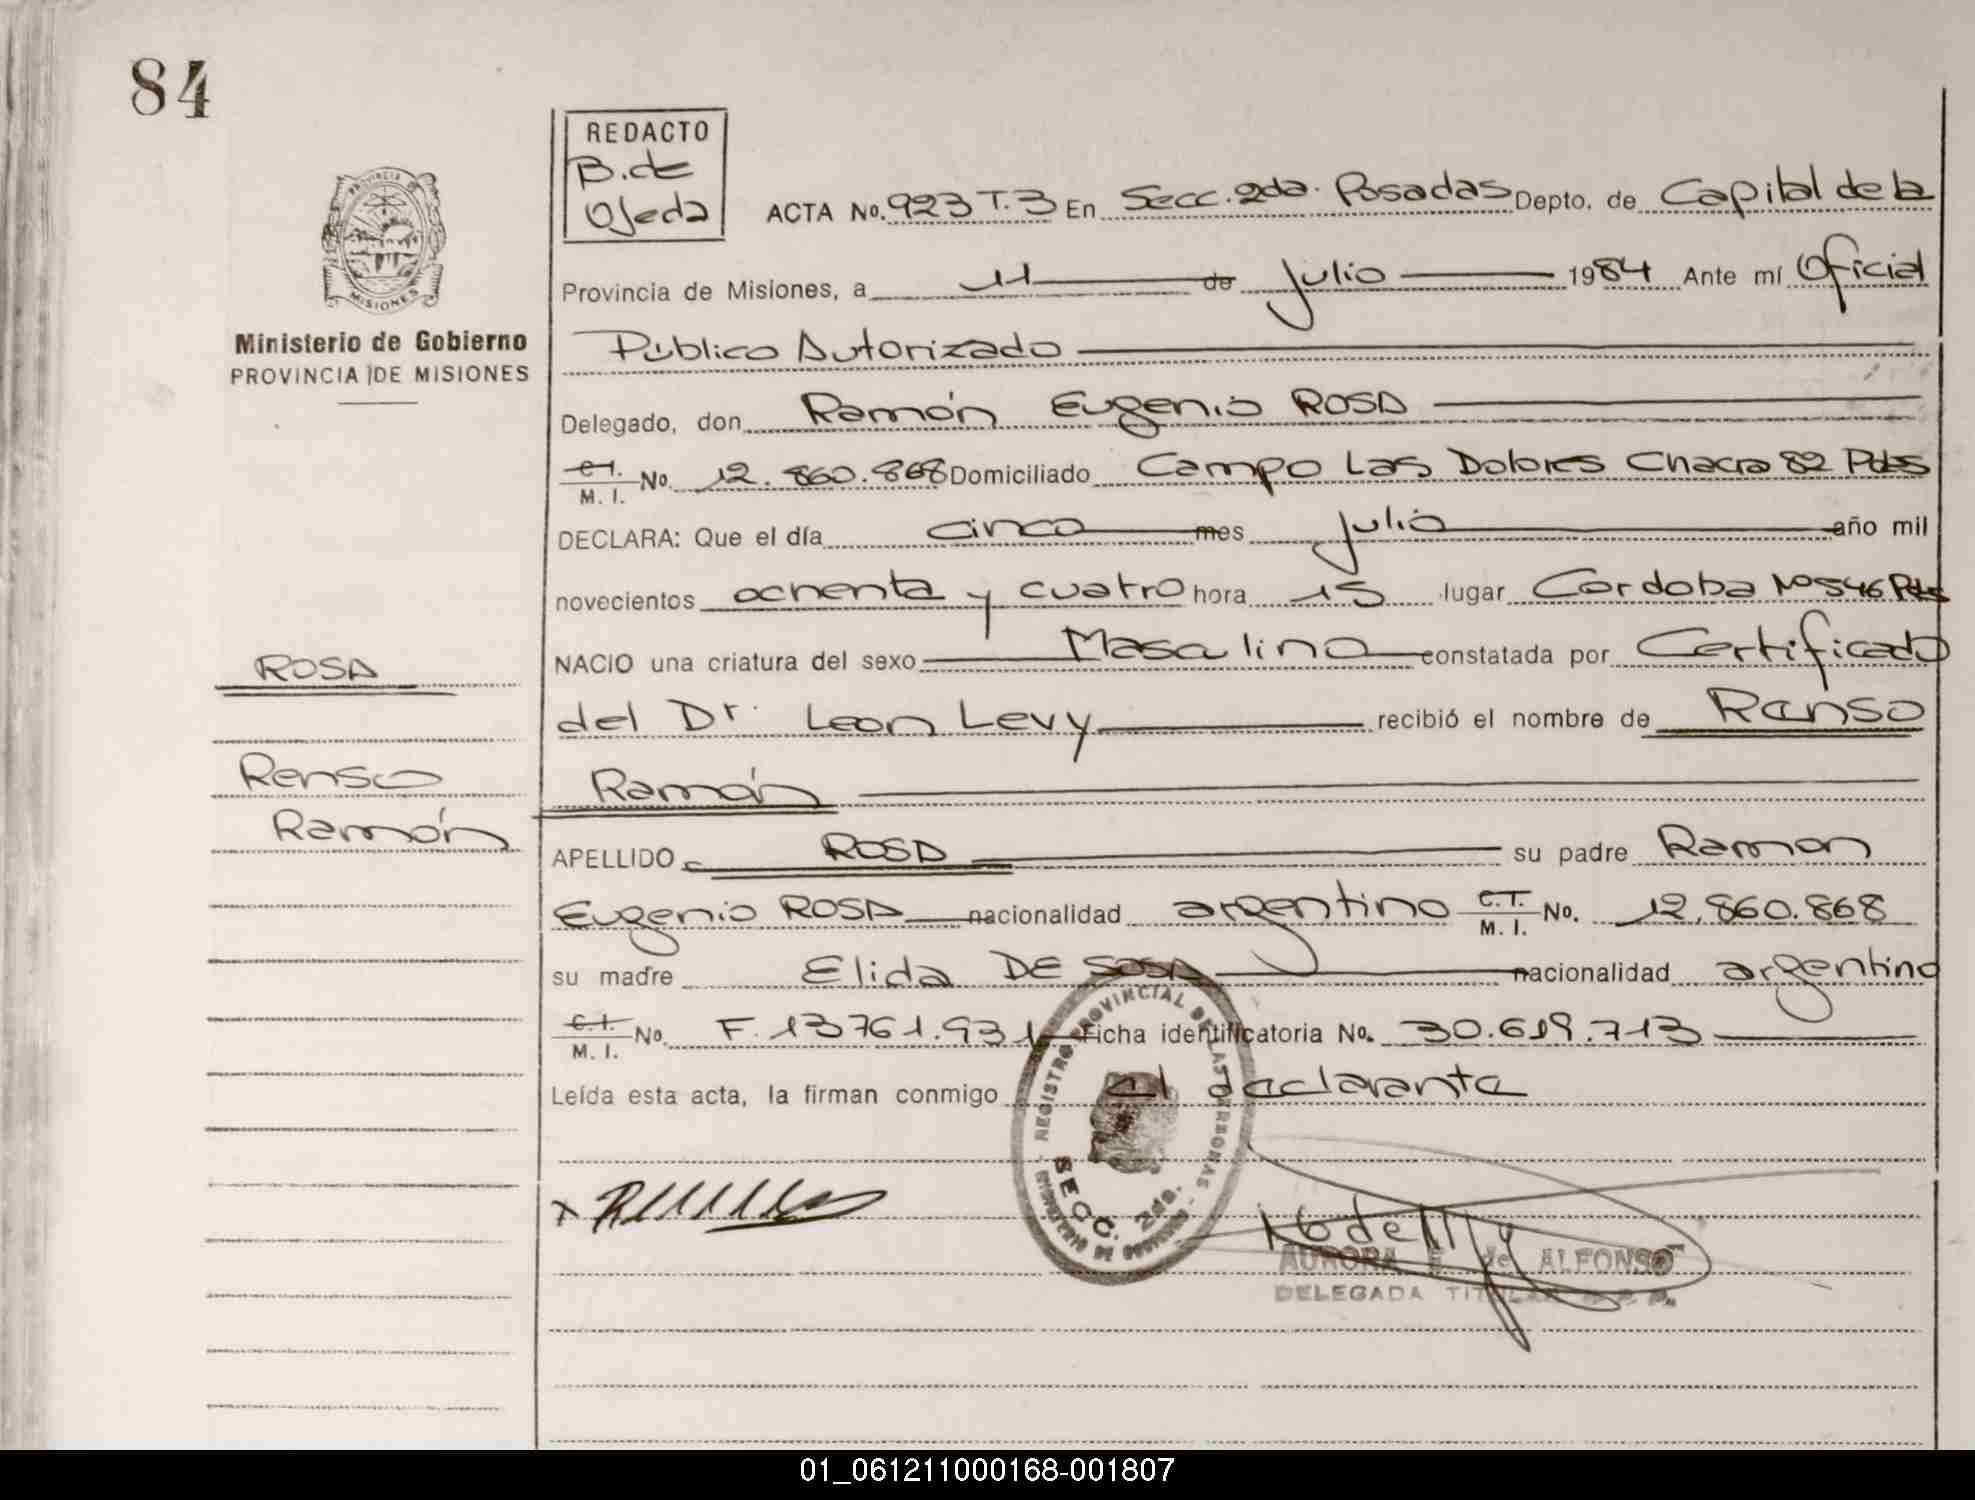 84
PROVINCIA DE
MISIONES
Ministerio de Gobierno
PROVINCIA DE MISIONES
REDACTO
B. de
Ojeda
ACTA No. 923 T.3 En Secc. 2da. Posadas Depto. de Capital de la
Provincia de Misiones, a 11 de Julio 1984 Ante mí Oficial
Público Autorizado
Delegado, don Ramón Eugenio ROSA
C.I. M. I. No. 12.860.868 Domiciliado Campo Las Dolores Chacra 82 Pdas
DECLARA: Que el día cinco mes Julio año mil
novecientos ochenta y cuatro hora 15 lugar Cordoba No 546 Pdas
NACIO una criatura del sexo Masculino constatada por Certificado
del Dr. Leon Levy recibió el nombre de Renso
Ramón
APELLIDO ROSA su padre Ramon
Eugenio ROSA nacionalidad argentino C.I. M. I. No. 12.860.868
su madre Elida DE SOSA nacionalidad argentina
C.I. M. I. No. F. 13761.931 Ficha identificatoria No. 30.619.713
Leída esta acta, la firman conmigo el declarante
ROSA
Renso
Ramón
REGISTRO PROVINCIAL DE LAS PERSONAS
SECC. 2da.
MINISTERIO DE GOBIERNO
AURORA E. de ALFONSO
DELEGADA TITULAR
01_061211000168-001807